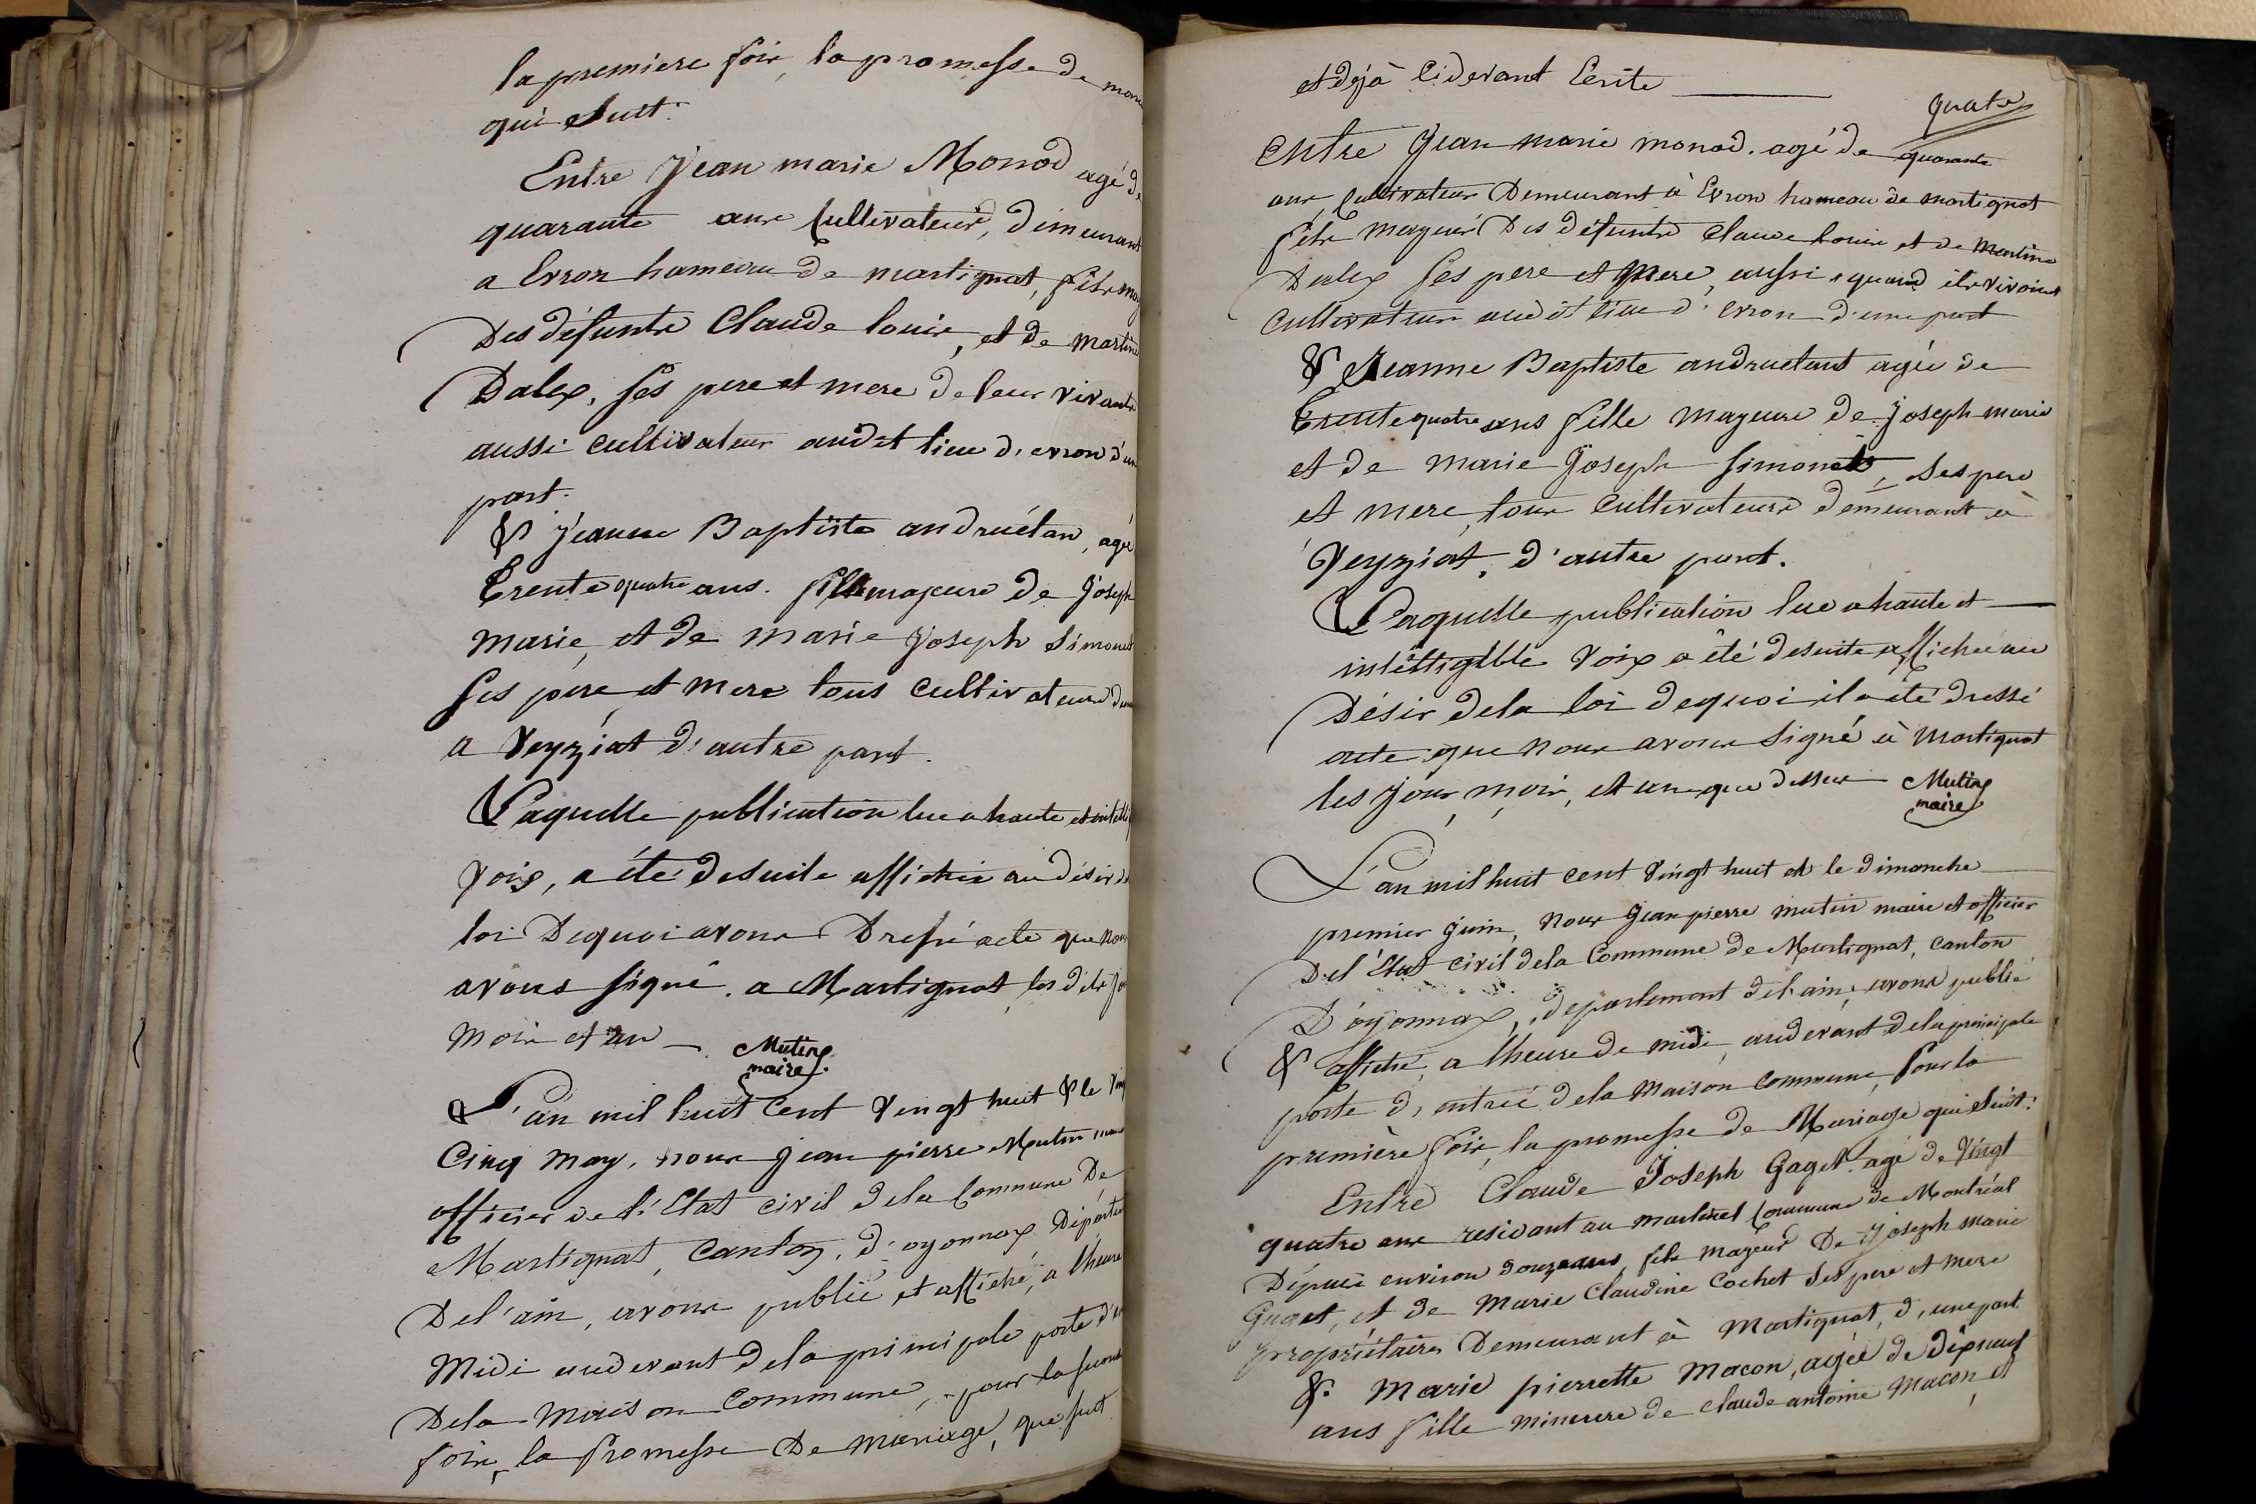 la premiere fois, la promesse de mari
qui suit.
Entre Jean marie Monod agé de
quarante ans Cultivateur, demeurant
a Evron hameau de martignat, fils maj
Des défunts Claude louis, et de martine
Dalex, ses pere et mere de leur vivants
aussi cultivateurs audit lieu d'evron d'une
part.
& jeanne Baptiste andruétan, agée
Trente quatre ans. fille majeure de Joseph
marie, et de marie joseph Simonet
ses père et mere tous cultivateurs dem
a Veyziat d'autre part.
Laquelle publication lue a haute et intelli
Voix, a été desuite affichée au désir de
loi Dequoi avons Dressé acte que nous
avons signé. a Martignat, les dits jo
mois et an
Mutin
maire
L'an mil huit Cent Vingt huit & le Ving
Cinq may, nous jean pierre Mutin maire
officier de l'Etat civil dela Commune De
Martignat, Canton d'oyonnax Départem
Del'ain, avons publié et affiché, a l'heure
Midi audevant dela principale porte d'en
Dela Maison Commune, pour la seconde
fois, la Promesse De mariage, que suit
et déjà Cidevant Ecrite
quatre
Entre Jean marie monod. agé de quarante
ans, Cultivateur Demeurant à Evron hameau de martignat
fils Mayeur Des défunts Claude louis et de Martine
Dalex ses pere et Mere, aussi quand ils vivoient
Cultivateurs audit lieu d'evron d'une part
& Jeanne Baptiste andruetant agée de
Trente quatre ans fille Mayeure de joseph marie
et de marie Joseph simonet, ses pere
et mere, tous Cultivateurs demeurant à
Veyziat, d'autre part.
Laquelle publication lue a haute et
intelligible Voix a été desuite affichée au
Désir dela loi dequoi il a été dressé
acte que nous avons signé à Martignat
les jour, mois, et an que dessus Mutin
maire
L'an mil huit cent vingt huit et le dimanche
premier juin, nous jean pierre mutin maire et officier
Del'Etat civil dela Commune de Martignat, canton
D'oyonnax, departement del'ain, avons publié
& affiché, a l'heure de midi, audevant dela principale
porte d'entrée dela Maison Commune, Pour la
première fois, la promesse de Mariage qui suit:
Entre Claude Joseph Gaget. agé de Vingt
quatre ans residant au martinet Commune de Montréal
Dépuis environ douze ans, fils mayeur De Joseph marie
Gaget, et de Marie Claudine Cochet ses pere et mere
propriétaires Demeurant à Martignat, d'une part
& Marie pierrette Macon, agée de dixneuf
ans fille mineure de claude antoine Macon et